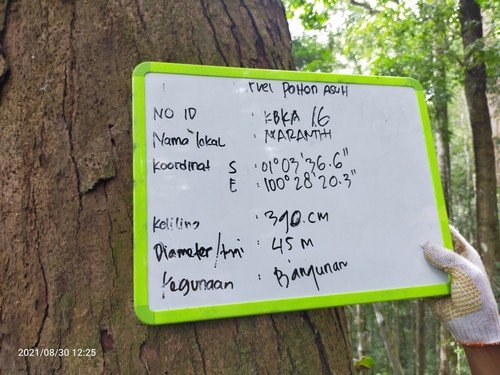 POHON ASUH
NO ID : KBKA 16
Nama lokal : MARANTHI
Koordinat S : 01° 03' 36.6"
E : 100° 28' 20.3"
Keliling : 390.cm
Diameter/ : 45 M
Kegunaan : Bangunan
2021/08/30 12:25